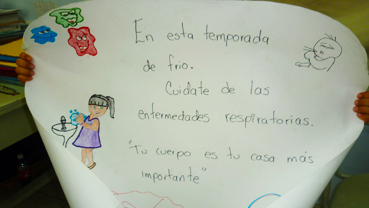 En esta temporada
de frio.
Cuidate de las
enfermedades respiratorias.
"Tu cuerpo es tu casa más
importante"